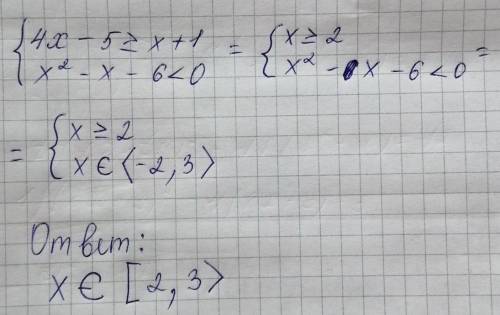 { 4x - 5 ≥ x + 1 = { x ≥ 2
{ x² - x - 6 < 0 { x² - x - 6 < 0 =
= { x ≥ 2
{ x ∈ ⟨-2, 3⟩
Ответ:
x ∈ [2, 3⟩